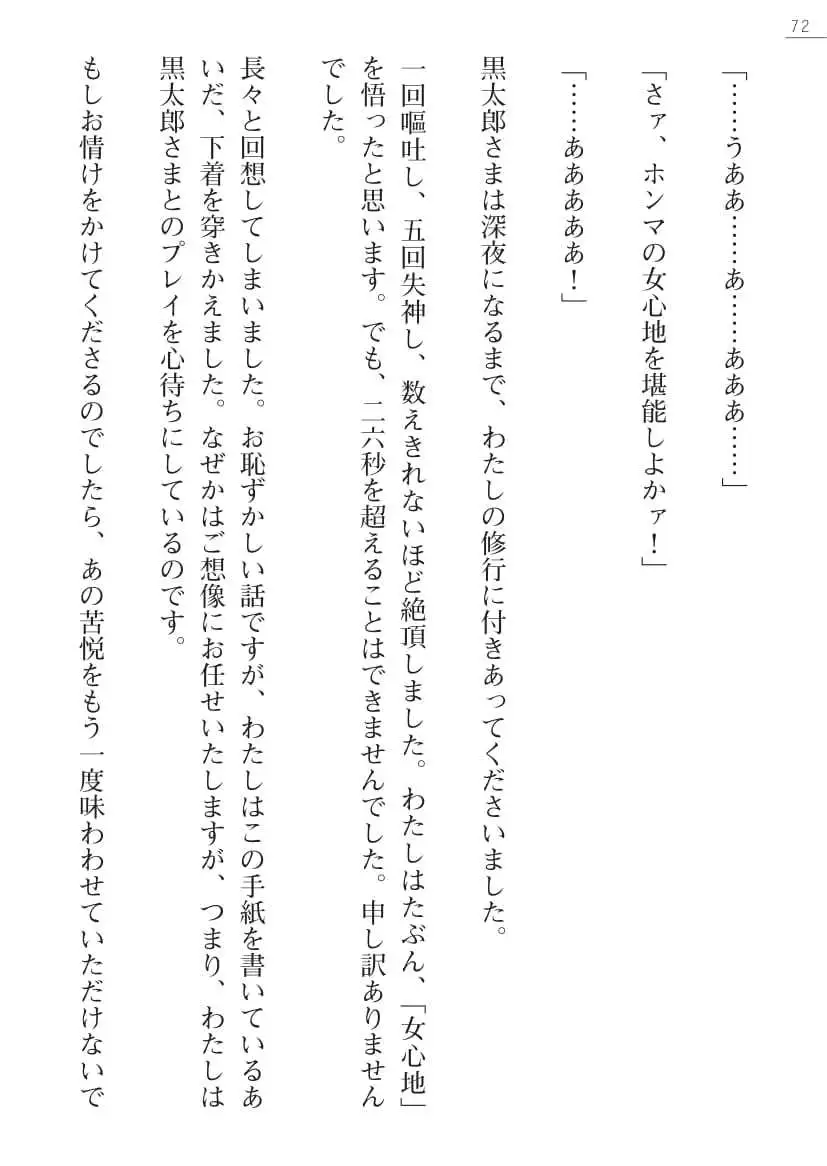 72
「……うああ……あ……あああ……」
「さァ、ホンマの女心地を堪能しよかァ！」
「……ああああああ！」
黒太郎さまは深夜になるまで、わたしの修行に付きあってくださいました。
一回嘔吐し、五回失神し、数えきれないほど絶頂しました。わたしはたぶん、「女心地」
を悟ったと思います。でも、二六秒を超えることはできませんでした。申し訳ありません
でした。
長々と回想してしまいました。お恥ずかしい話ですが、わたしはこの手紙を書いているあ
いだ、下着を穿きかえました。なぜかはご想像にお任せいたしますが、つまり、わたしは
黒太郎さまとのプレイを心待ちにしているのです。
もしお情けをかけてくださるのでしたら、あの苦悦をもう一度味わわせていただけないで